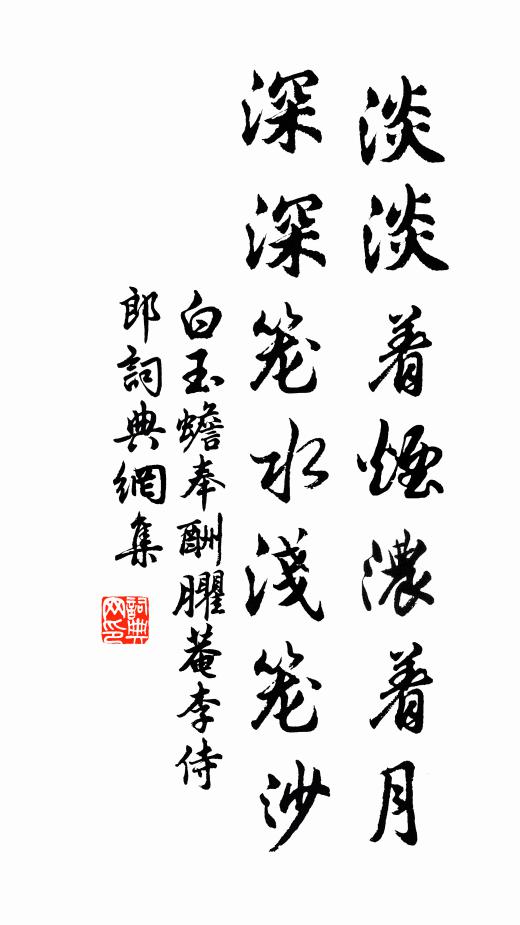 淡淡着煙濃着月
深深笼水淺笼沙
白玉蟾奉酬臞菴李侍
郎詞典網集
詞典
网印